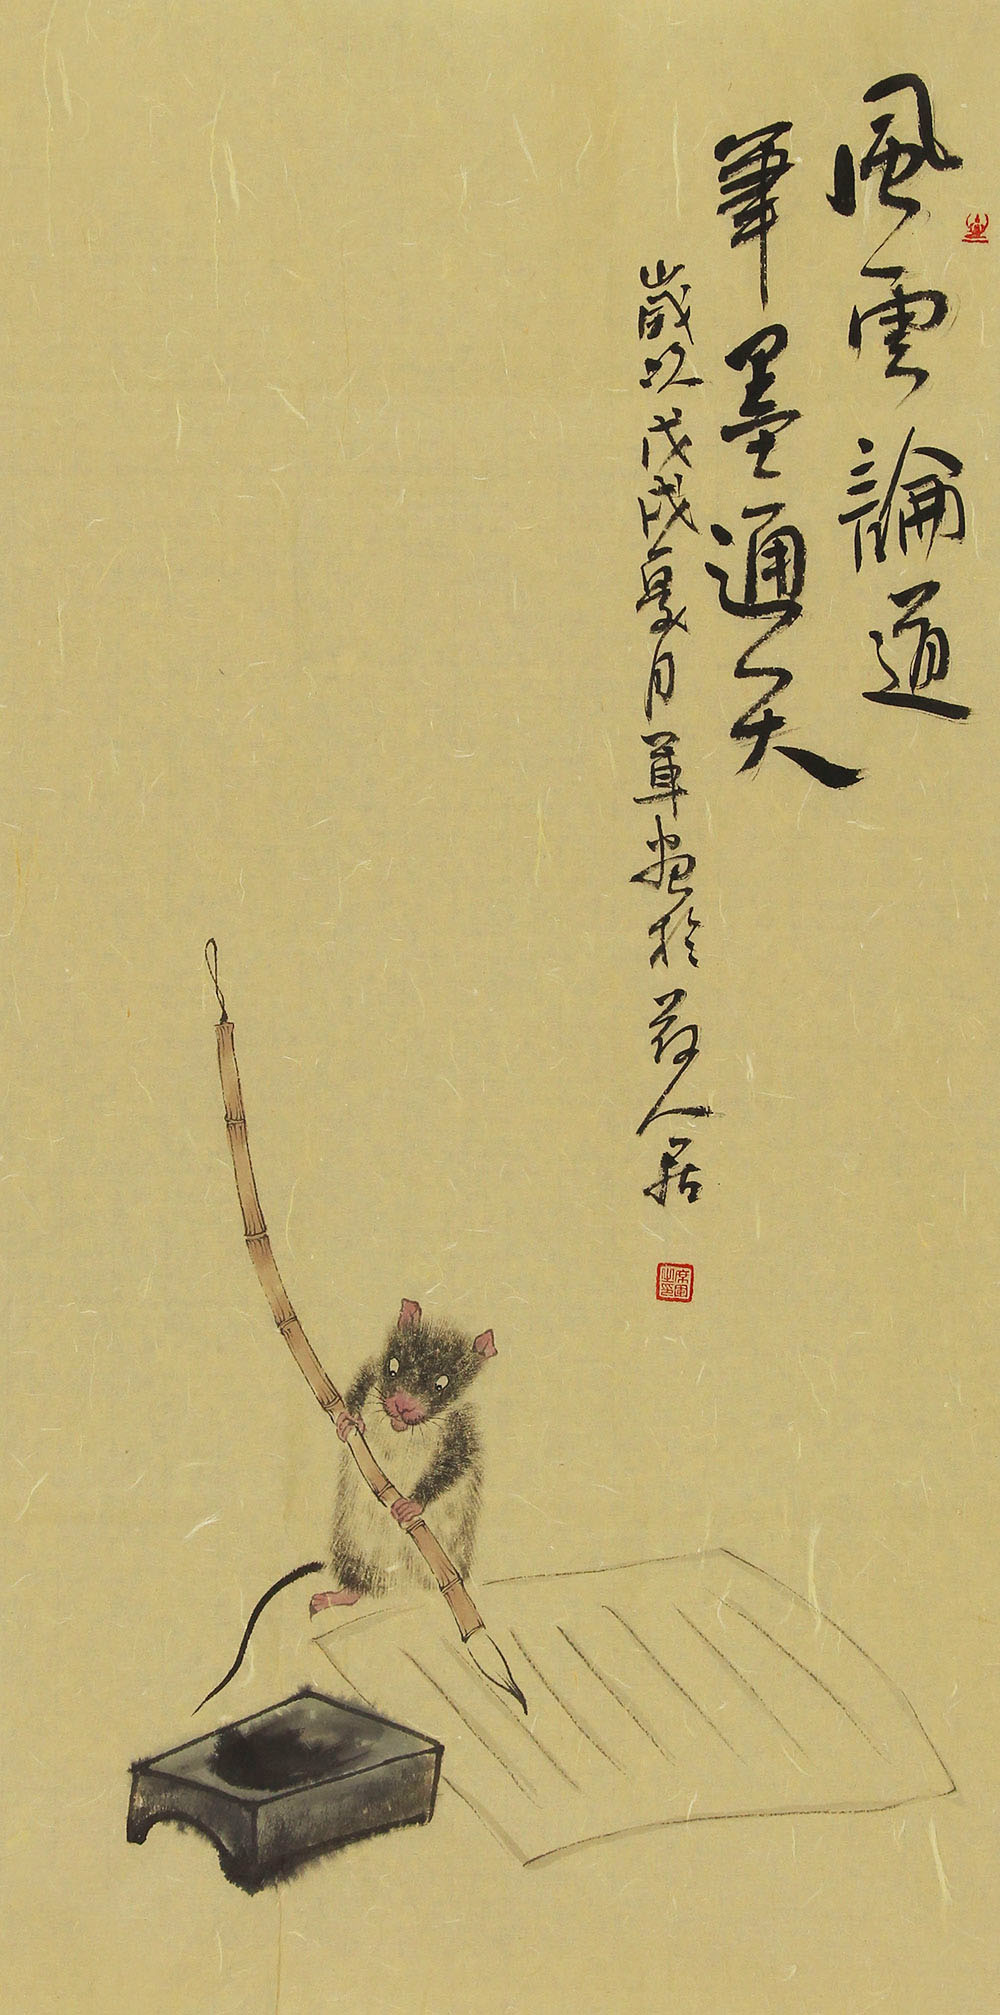 風雲論道
筆墨通天
歲次戊戌夏月軍畫於荷人居